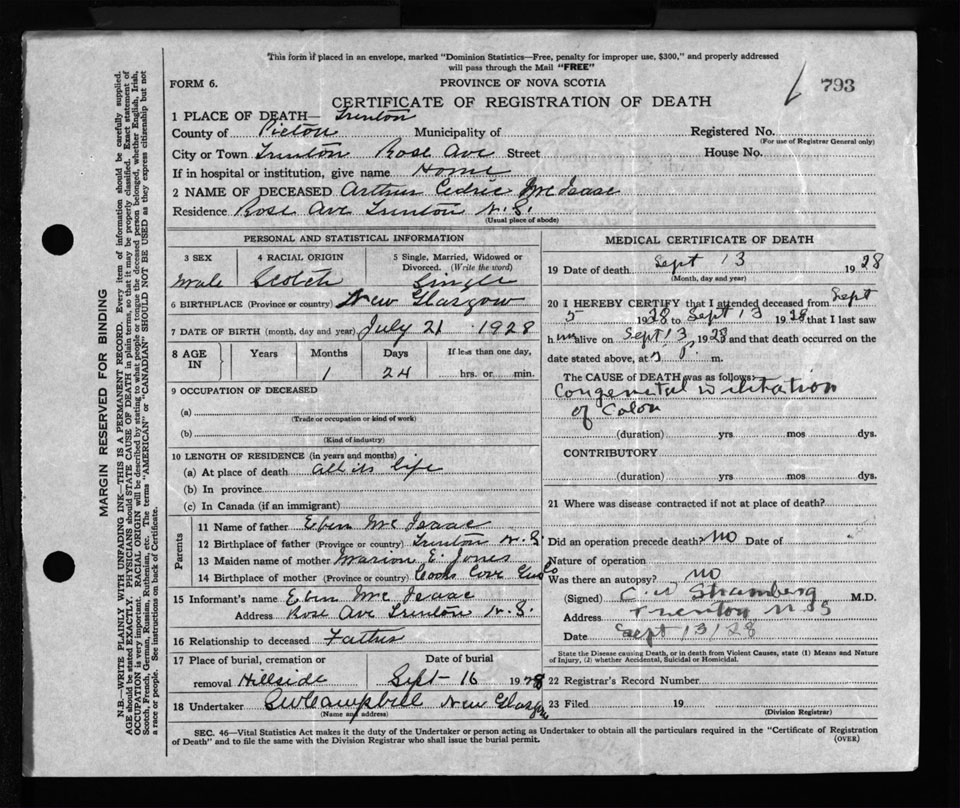 This form if placed in an envelope, marked "Dominion Statistics—Free, penalty for improper use, $300," and properly addressed
will pass through the Mail "FREE"
FORM 6.
PROVINCE OF NOVA SCOTIA
793
CERTIFICATE OF REGISTRATION OF DEATH
1 PLACE OF DEATH— Trenton
County of Pictou Municipality of Registered No.
(For use of Registrar General only)
City or Town Trenton Rose Ave Street House No.
If in hospital or institution, give name Home
2 NAME OF DECEASED Arthur Cedric McIsaac
Residence Rose Ave Trenton N.S.
(Usual place of abode)
PERSONAL AND STATISTICAL INFORMATION
3 SEX 4 RACIAL ORIGIN 5 Single, Married, Widowed or
Divorced. (Write the word)
Male Scotch Single
6 BIRTHPLACE (Province or country) New Glasgow
7 DATE OF BIRTH (month, day and year) July 21 1928
8 AGE IN Years Months Days If less than one day,
1 24 hrs. or min.
9 OCCUPATION OF DECEASED
(a)
(Trade or occupation or kind of work)
(b)
(Kind of industry)
10 LENGTH OF RESIDENCE (in years and months)
(a) At place of death all its life
(b) In province
(c) In Canada (if an immigrant)
Parents
11 Name of father Eben McIsaac
12 Birthplace of father (Province or country) Trenton N.S.
13 Maiden name of mother Marion E. Jones
14 Birthplace of mother (Province or country) Cooks Cove Guys Co
15 Informant's name Eben McIsaac
Address Rose Ave Trenton N.S.
16 Relationship to deceased Father
17 Place of burial, cremation or Date of burial
removal Hillside Sept 16 1928
18 Undertaker Campbell New Glasgow
(Name and address)
MEDICAL CERTIFICATE OF DEATH
19 Date of death Sept 13 1928
(Month, day and year)
20 I HEREBY CERTIFY that I attended deceased from Sept
5 1928 to Sept 13 1928 that I last saw
him alive on Sept 13 1928 and that death occurred on the
date stated above, at P. m.
The CAUSE of DEATH was as follows:
Congenital Dilitation
of Colon
(duration) yrs mos dys.
CONTRIBUTORY
(duration) yrs mos dys.
21 Where was disease contracted if not at place of death?
Did an operation precede death? No Date of
Nature of operation
Was there an autopsy? no
(Signed) Stramberg M.D.
Address Trenton N.S
Date Sept 13/28
State the Disease causing Death, or in death from Violent Causes, state (1) Means and Nature
of Injury, (2) whether Accidental, Suicidal or Homicidal.
22 Registrar's Record Number
23 Filed 19
(Division Registrar)
SEC. 46—Vital Statistics Act makes it the duty of the Undertaker or person acting as Undertaker to obtain all the particulars required in the "Certificate of Registration
of Death" and to file the same with the Division Registrar who shall issue the burial permit.
(OVER)
MARGIN RESERVED FOR BINDING
N.B.—WRITE PLAINLY WITH UNFADING INK—THIS IS A PERMANENT RECORD. Every item of information should be carefully supplied.
AGE should be stated EXACTLY. PHYSICIANS should STATE CAUSE OF DEATH in plain terms, so that it may be properly classified. Exact statement of
OCCUPATION is very important. RACIAL ORIGIN will be described by stating to what people or tongue the deceased person belonged, whether English, Irish,
Scotch, French, German, Russian, Ruthenian, etc. The terms "AMERICAN" or "CANADIAN" SHOULD NOT BE USED as they express citizenship but not
a race or people. See instructions on back of Certificate.